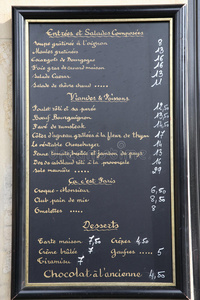 Entrées et Salades Composées
Soupe gratinée à l'oignon 8
Moules gratinées 13
Escargots de Bourgogne 16
Foie gras de canard maison 16
Salade César 13
Salade de chèvre chaud 11
Viandes & Poissons
Poulet rôti et sa purée 12,50
Bœuf Bourguignon
Pavé de rumsteak
Côtes d'agneau grillées à la fleur de thym 17
Le véritable cheeseburger 14
Penne tomate, basilic et jambon de pays 13
Dos de cabillaud rôti à la provençale 16
Sole meunière 29
Ca c'est Paris
Croque-Monsieur 6,50
Club, pain de mie 8,50
Omelettes 8
Desserts
Tarte maison 7,50 Crêpes 4,50
Crème brûlée 7 Gaufres 5
Tiramisu 7
Chocolat à l'ancienne 4,50